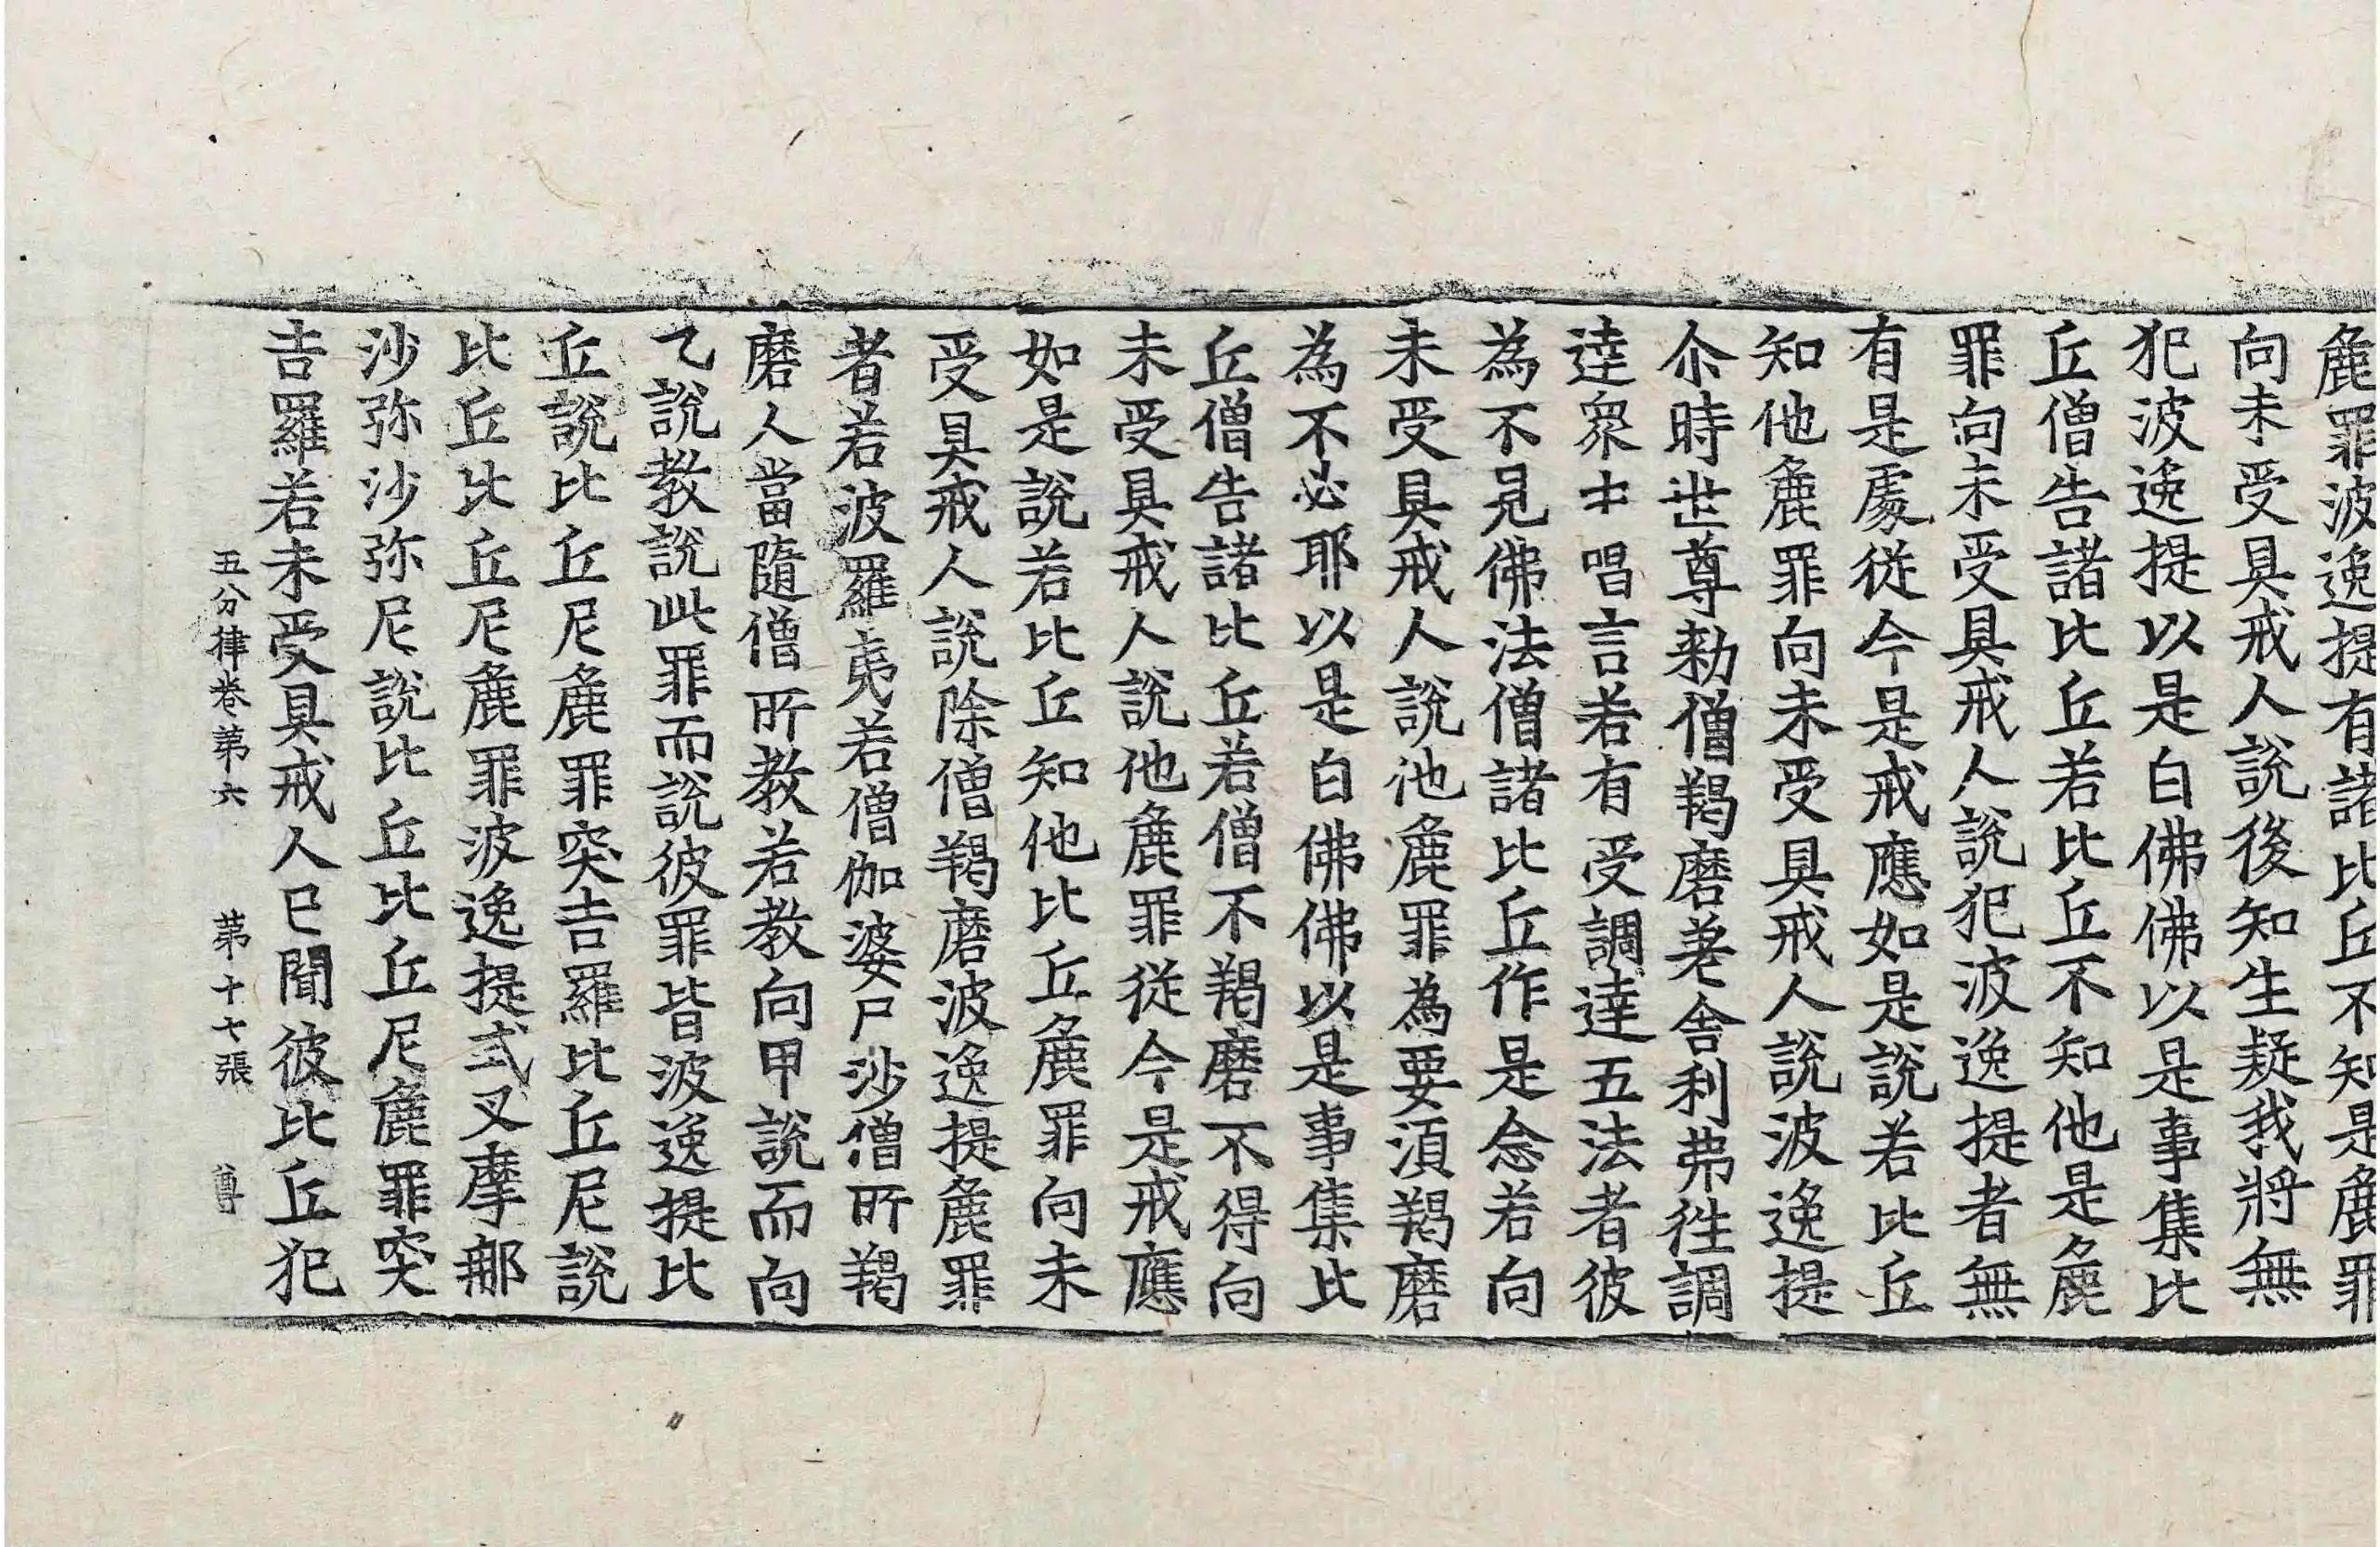 麁罪波逸提有諸比丘不知是麁罪
向未受具戒人說後知生疑我將無
犯波逸提以是白佛佛以是事集比
丘僧告諸比丘若比丘不知他是麁
罪向未受具戒人說犯波逸提者無
有是處從今是戒應如是說若比丘
知他麁罪向未受具戒人說波逸提
尒時世尊勑僧羯磨差舍利弗徃調
達衆中唱言若有受調達五法者彼
為不見佛法僧諸比丘作是念若向
未受具戒人說他麁罪為要湏羯磨
為不必耶以是白佛佛以是事集比
丘僧告諸比丘若僧不羯磨不得向
未受具戒人說他麁罪從今是戒應
如是說若比丘知他比丘麁罪向未
受具戒人說除僧羯磨波逸提麁罪
者若波羅夷若僧伽婆尸沙僧所羯
磨人當隨僧所教若教向甲說而向
乙說教說此罪而說彼罪皆波逸提比
丘說比丘尼麁罪突吉羅比丘尼說
比丘比丘尼麁罪波逸提式叉摩那
沙弥沙弥尼說比丘比丘尼麁罪突
吉羅若未受具戒人已聞彼比丘犯
五分律卷第六 第十七張 尊